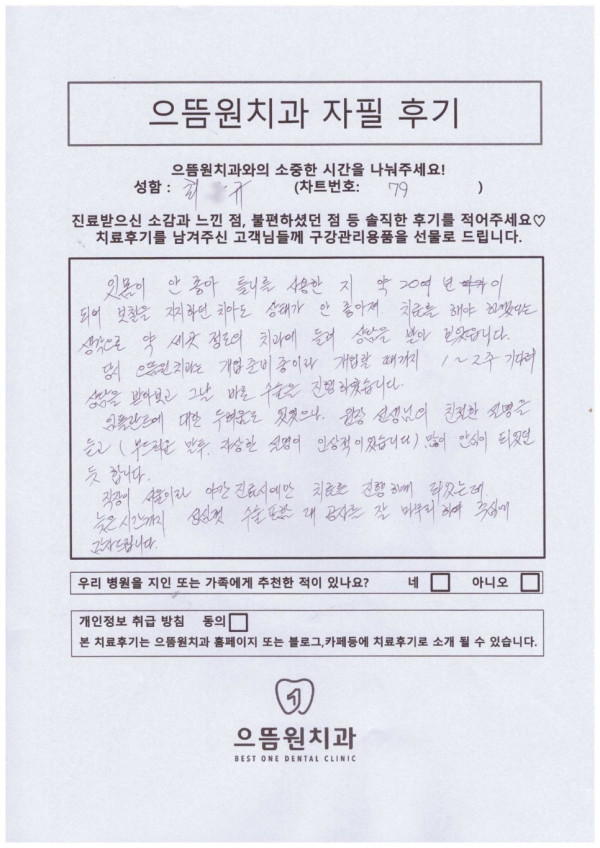 으뜸원치과 자필 후기
으뜸원치과와의 소중한 시간을 나눠주세요!
성함 : 최 규 (차트번호: 79 )
진료받으신 소감과 느낀 점, 불편하셨던 점 등 솔직한 후기를 적어주세요♡
치료후기를 남겨주신 고객님들께 구강관리용품을 선물로 드립니다.
잇몸이 안 좋아 틀니를 사용한 지 약 20여 년 이
되어 보철을 지지하던 치아도 상태가 안 좋아져 치료를 해야 하겠다는
생각으로 약 세곳 정도의 치과에 들려 상담을 받아 보았습니다.
당시 으뜸원치과는 개업준비중이라 개업할 때까지 1~2주 기다려
상담을 받아보고 그날 바로 수술을 진행하였습니다.
임플란트에 대한 두려움도 있었으나, 원장 선생님의 친절한 설명을
듣고 (부드러운 말투, 자상한 설명이 인상적이었습니다) 많이 안심이 되었던
듯 합니다.
직장이 서울이라 야간진료시에만 치료를 진행하게 되었는데,
늦은시간까지 성심껏 수술포함 대 공사를 잘 마무리 하여 주심에
감사드립니다.
우리 병원을 지인 또는 가족에게 추천한 적이 있나요? 네 □ 아니오 □
개인정보 취급 방침 동의 □
본 치료후기는 으뜸원치과 홈페이지 또는 블로그,카페등에 치료후기로 소개 될 수 있습니다.
으뜸원치과
BEST ONE DENTAL CLINIC